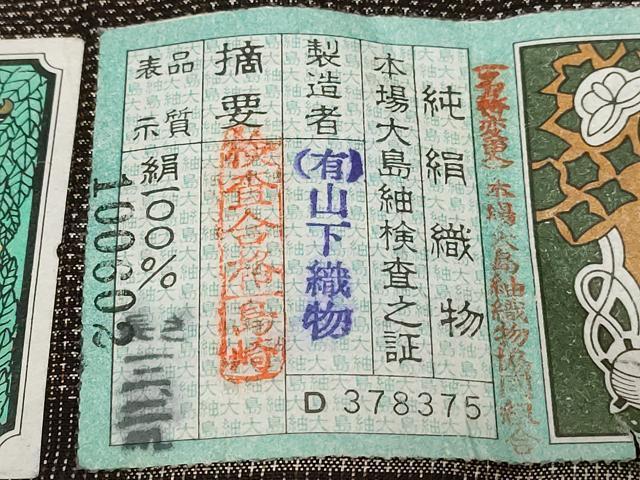 本場大島紬織物協同組合
純絹織物
本場大島紬検査之証
製造者
(有)山下織物
摘要
検査合格 島崎
品質
表示
絹一〇〇%
長さ
100802
D 378375